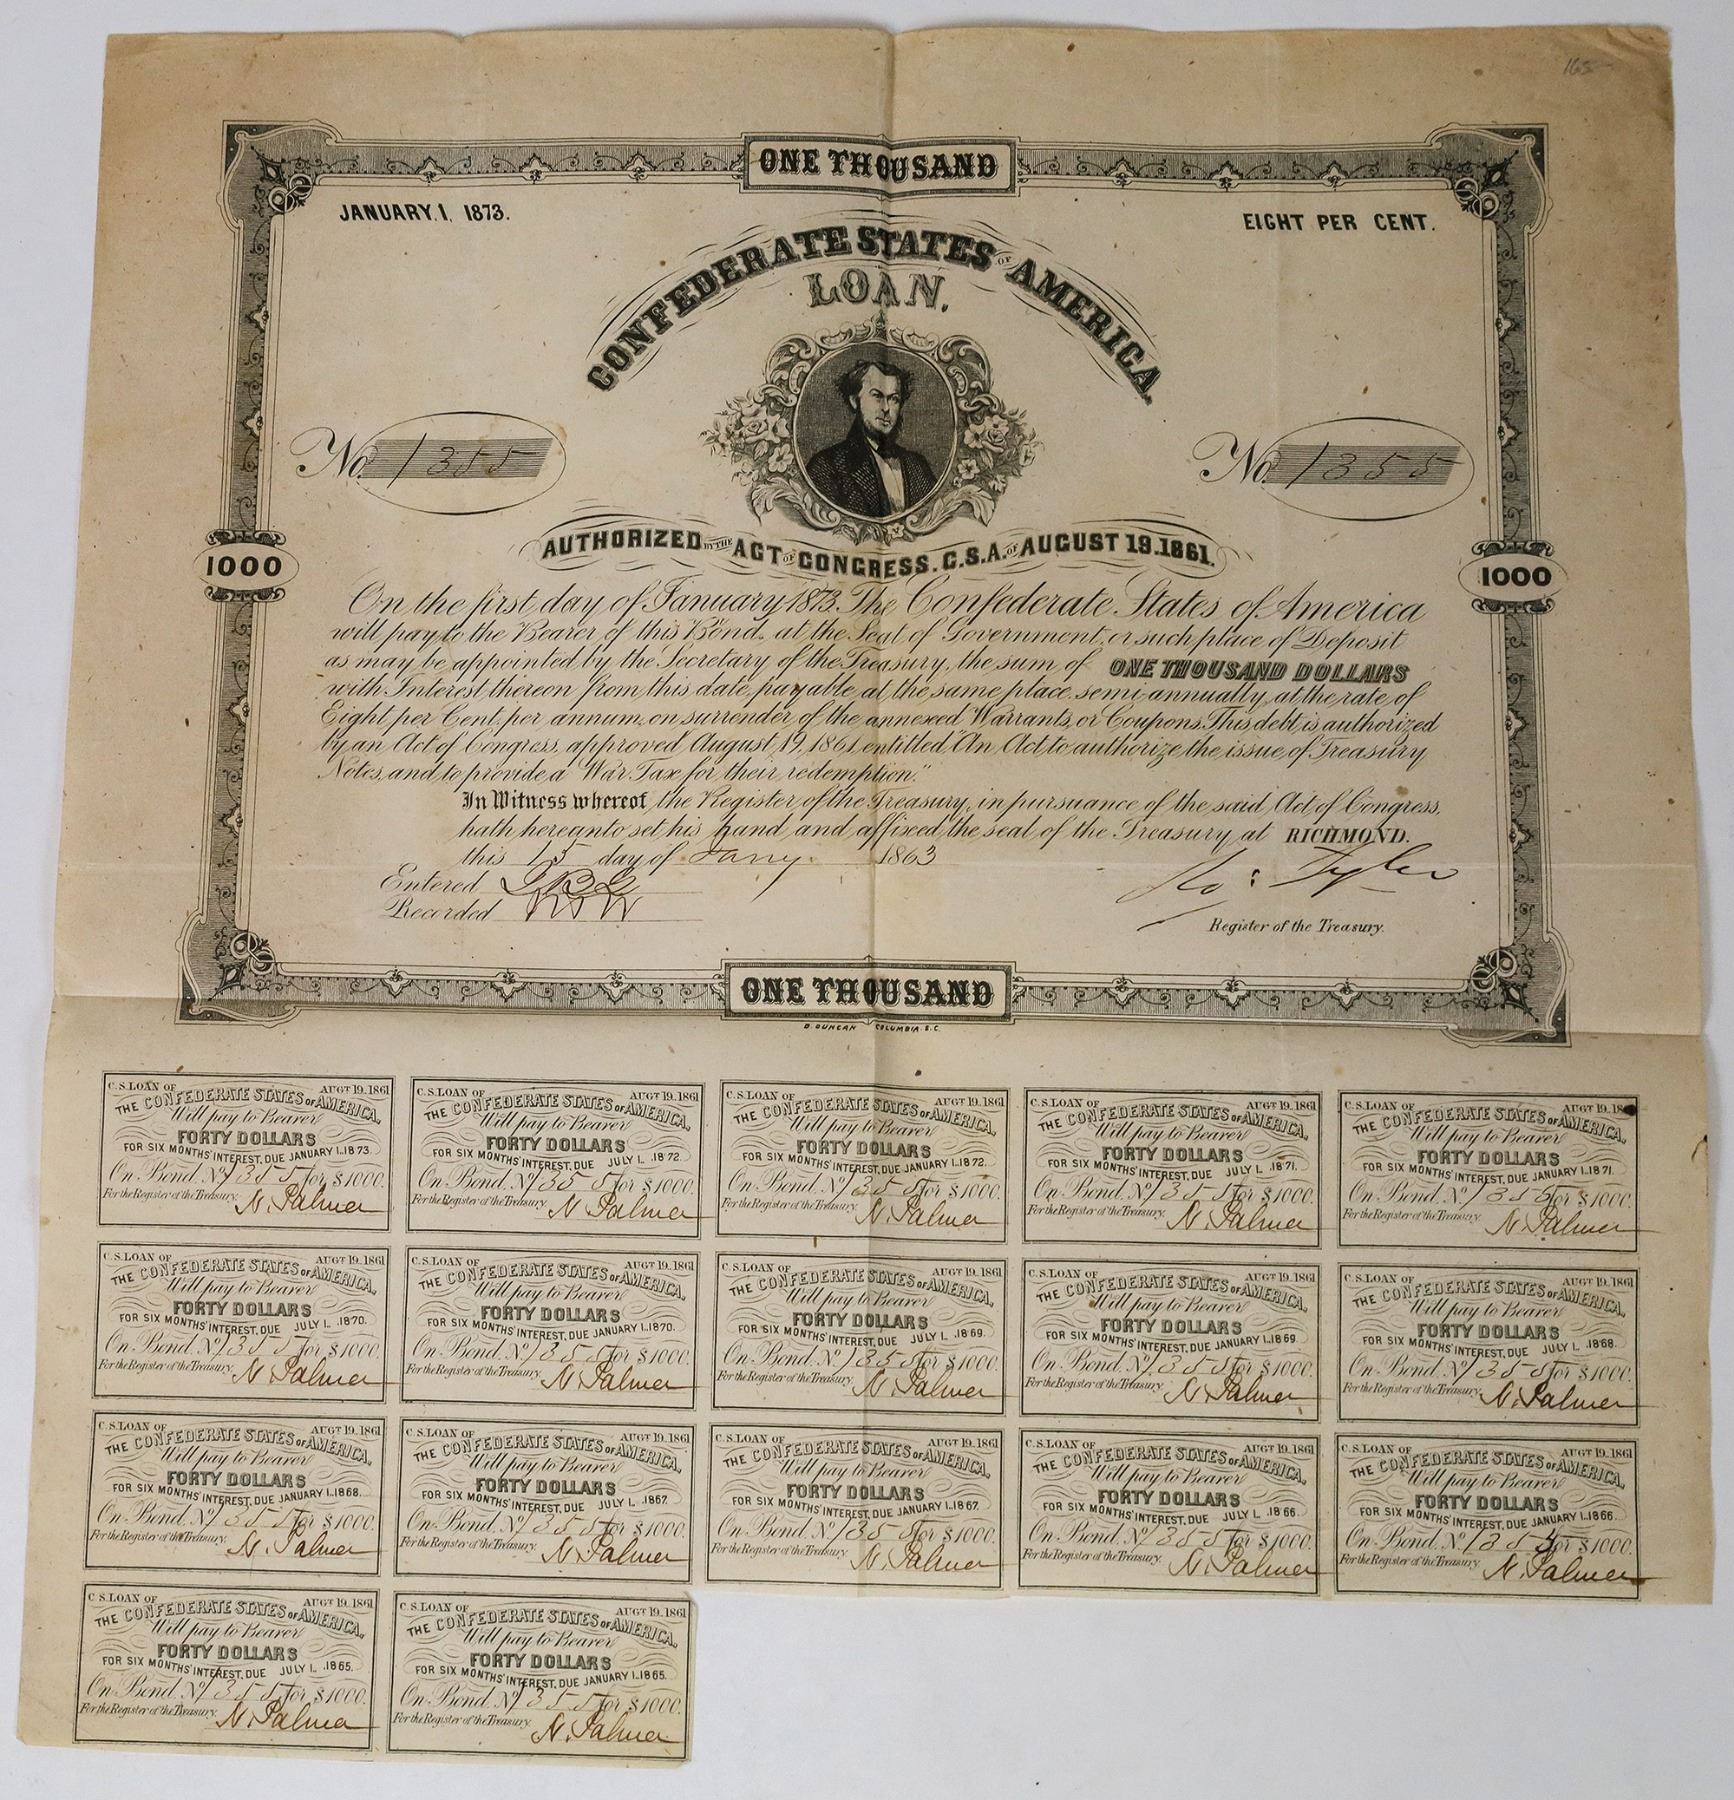 165
ONE THOUSAND
JANUARY, 1, 1873.
EIGHT PER CENT.
CONFEDERATE STATES OF AMERICA.
LOAN.
No. 1355
No. 1355
AUTHORIZED BY THE ACT OF CONGRESS. C.S.A. OF AUGUST 19.1861.
1000
1000
On the first day of January 1873. The Confederate States of America
will pay to the Bearer of this Bond, at the Seat of Government, or such place of Deposit
as may be appointed by the Secretary of the Treasury, the sum of ONE THOUSAND DOLLARS
with Interest thereon from this date, payable at the same place, semi-annually, at the rate of
Eight per Cent, per annum, on surrender of the annexed Warrants, or Coupons. This debt, is authorized
by an Act of Congress, approved August, 19, 1861, entitled "An Act to authorize, the issue, of Treasury
Notes, and to provide a War Tax for their redemption."
In Witness whereof, the Register of the Treasury, in pursuance of the said Act of Congress,
hath hereunto set his hand and affixed, the seal of the Treasury at RICHMOND.
this 15 day of Jany. 1863
Entered
Recorded
Ro: Tyler
Register of the Treasury.
ONE THOUSAND
D. DUNCAN COLUMBIA. S.C.
C.S. LOAN OF AUGT 19. 1861
THE CONFEDERATE STATES OF AMERICA,
Will pay to Bearer
FORTY DOLLARS
FOR SIX MONTHS' INTEREST, DUE JANUARY 1..1873.
On Bond. No. 1355 for $1000.
For the Register of the Treasury. N. Palmer
C.S. LOAN OF AUGT 19. 1861
THE CONFEDERATE STATES OF AMERICA,
Will pay to Bearer
FORTY DOLLARS
FOR SIX MONTHS' INTEREST, DUE JULY 1.. .1872.
On Bond. No. 1355 for $1000.
For the Register of the Treasury. N. Palmer
C.S. LOAN OF AUGT 19. 1861
THE CONFEDERATE STATES OF AMERICA,
Will pay to Bearer
FORTY DOLLARS
FOR SIX MONTHS' INTEREST, DUE JANUARY 1..1872.
On Bond. No. 1355 for $1000.
For the Register of the Treasury. N. Palmer
C.S. LOAN OF AUGT 19. 1861
THE CONFEDERATE STATES OF AMERICA,
Will pay to Bearer
FORTY DOLLARS
FOR SIX MONTHS' INTEREST, DUE JULY 1.. .1871.
On Bond. No. 1355 for $1000.
For the Register of the Treasury. N. Palmer
C.S. LOAN OF AUGT 19. 18
THE CONFEDERATE STATES OF AMERICA,
Will pay to Bearer
FORTY DOLLARS
FOR SIX MONTHS' INTEREST, DUE JANUARY 1..1871.
On Bond. No. 1355 for $1000.
For the Register of the Treasury. N. Palmer
C.S. LOAN OF AUGT 19. 1861
THE CONFEDERATE STATES OF AMERICA,
Will pay to Bearer
FORTY DOLLARS
FOR SIX MONTHS' INTEREST, DUE JULY 1.. .1870.
On Bond. No. 1355 for $1000.
For the Register of the Treasury. N. Palmer
C.S. LOAN OF AUGT 19. 1861
THE CONFEDERATE STATES OF AMERICA,
Will pay to Bearer
FORTY DOLLARS
FOR SIX MONTHS' INTEREST, DUE JANUARY 1..1870.
On Bond. No. 1355 for $1000.
For the Register of the Treasury. N. Palmer
C.S. LOAN OF AUGT 19. 1861
THE CONFEDERATE STATES OF AMERICA,
Will pay to Bearer
FORTY DOLLARS
FOR SIX MONTHS' INTEREST, DUE JULY 1.. .1869.
On Bond. No. 1355 for $1000.
For the Register of the Treasury. N. Palmer
C.S. LOAN OF AUGT 19. 1861
THE CONFEDERATE STATES OF AMERICA,
Will pay to Bearer
FORTY DOLLARS
FOR SIX MONTHS' INTEREST, DUE JANUARY 1..1869.
On Bond. No. 1355 for $1000.
For the Register of the Treasury. N. Palmer
C.S. LOAN OF AUGT 19. 1861
THE CONFEDERATE STATES OF AMERICA,
Will pay to Bearer
FORTY DOLLARS
FOR SIX MONTHS' INTEREST, DUE JULY 1.. .1868.
On Bond. No. 1355 for $1000.
For the Register of the Treasury. N. Palmer
C.S. LOAN OF AUGT 19. 1861
THE CONFEDERATE STATES OF AMERICA,
Will pay to Bearer
FORTY DOLLARS
FOR SIX MONTHS' INTEREST, DUE JANUARY 1..1868.
On Bond. No. 1355 for $1000.
For the Register of the Treasury. N. Palmer
C.S. LOAN OF AUGT 19. 1861
THE CONFEDERATE STATES OF AMERICA,
Will pay to Bearer
FORTY DOLLARS
FOR SIX MONTHS' INTEREST, DUE JULY 1.. .1867.
On Bond. No. 1355 for $1000.
For the Register of the Treasury. N. Palmer
C.S. LOAN OF AUGT 19. 1861
THE CONFEDERATE STATES OF AMERICA,
Will pay to Bearer
FORTY DOLLARS
FOR SIX MONTHS' INTEREST, DUE JANUARY 1..1867.
On Bond. No. 1355 for $1000.
For the Register of the Treasury. N. Palmer
C.S. LOAN OF AUGT 19. 1861
THE CONFEDERATE STATES OF AMERICA,
Will pay to Bearer
FORTY DOLLARS
FOR SIX MONTHS' INTEREST, DUE JULY 1.. .1866.
On Bond. No. 1355 for $1000.
For the Register of the Treasury. N. Palmer
C.S. LOAN OF AUGT 19. 1861
THE CONFEDERATE STATES OF AMERICA,
Will pay to Bearer
FORTY DOLLARS
FOR SIX MONTHS' INTEREST, DUE JANUARY 1..1866.
On Bond. No. 1355 for $1000.
For the Register of the Treasury. N. Palmer
C.S. LOAN OF AUGT 19. 1861
THE CONFEDERATE STATES OF AMERICA,
Will pay to Bearer
FORTY DOLLARS
FOR SIX MONTHS' INTEREST, DUE JULY 1.. .1865.
On Bond. No. 1355 for $1000.
For the Register of the Treasury. N. Palmer
C.S. LOAN OF AUGT 19. 1861
THE CONFEDERATE STATES OF AMERICA,
Will pay to Bearer
FORTY DOLLARS
FOR SIX MONTHS' INTEREST, DUE JANUARY 1..1865.
On Bond. No. 1355 for $1000.
For the Register of the Treasury. N. Palmer